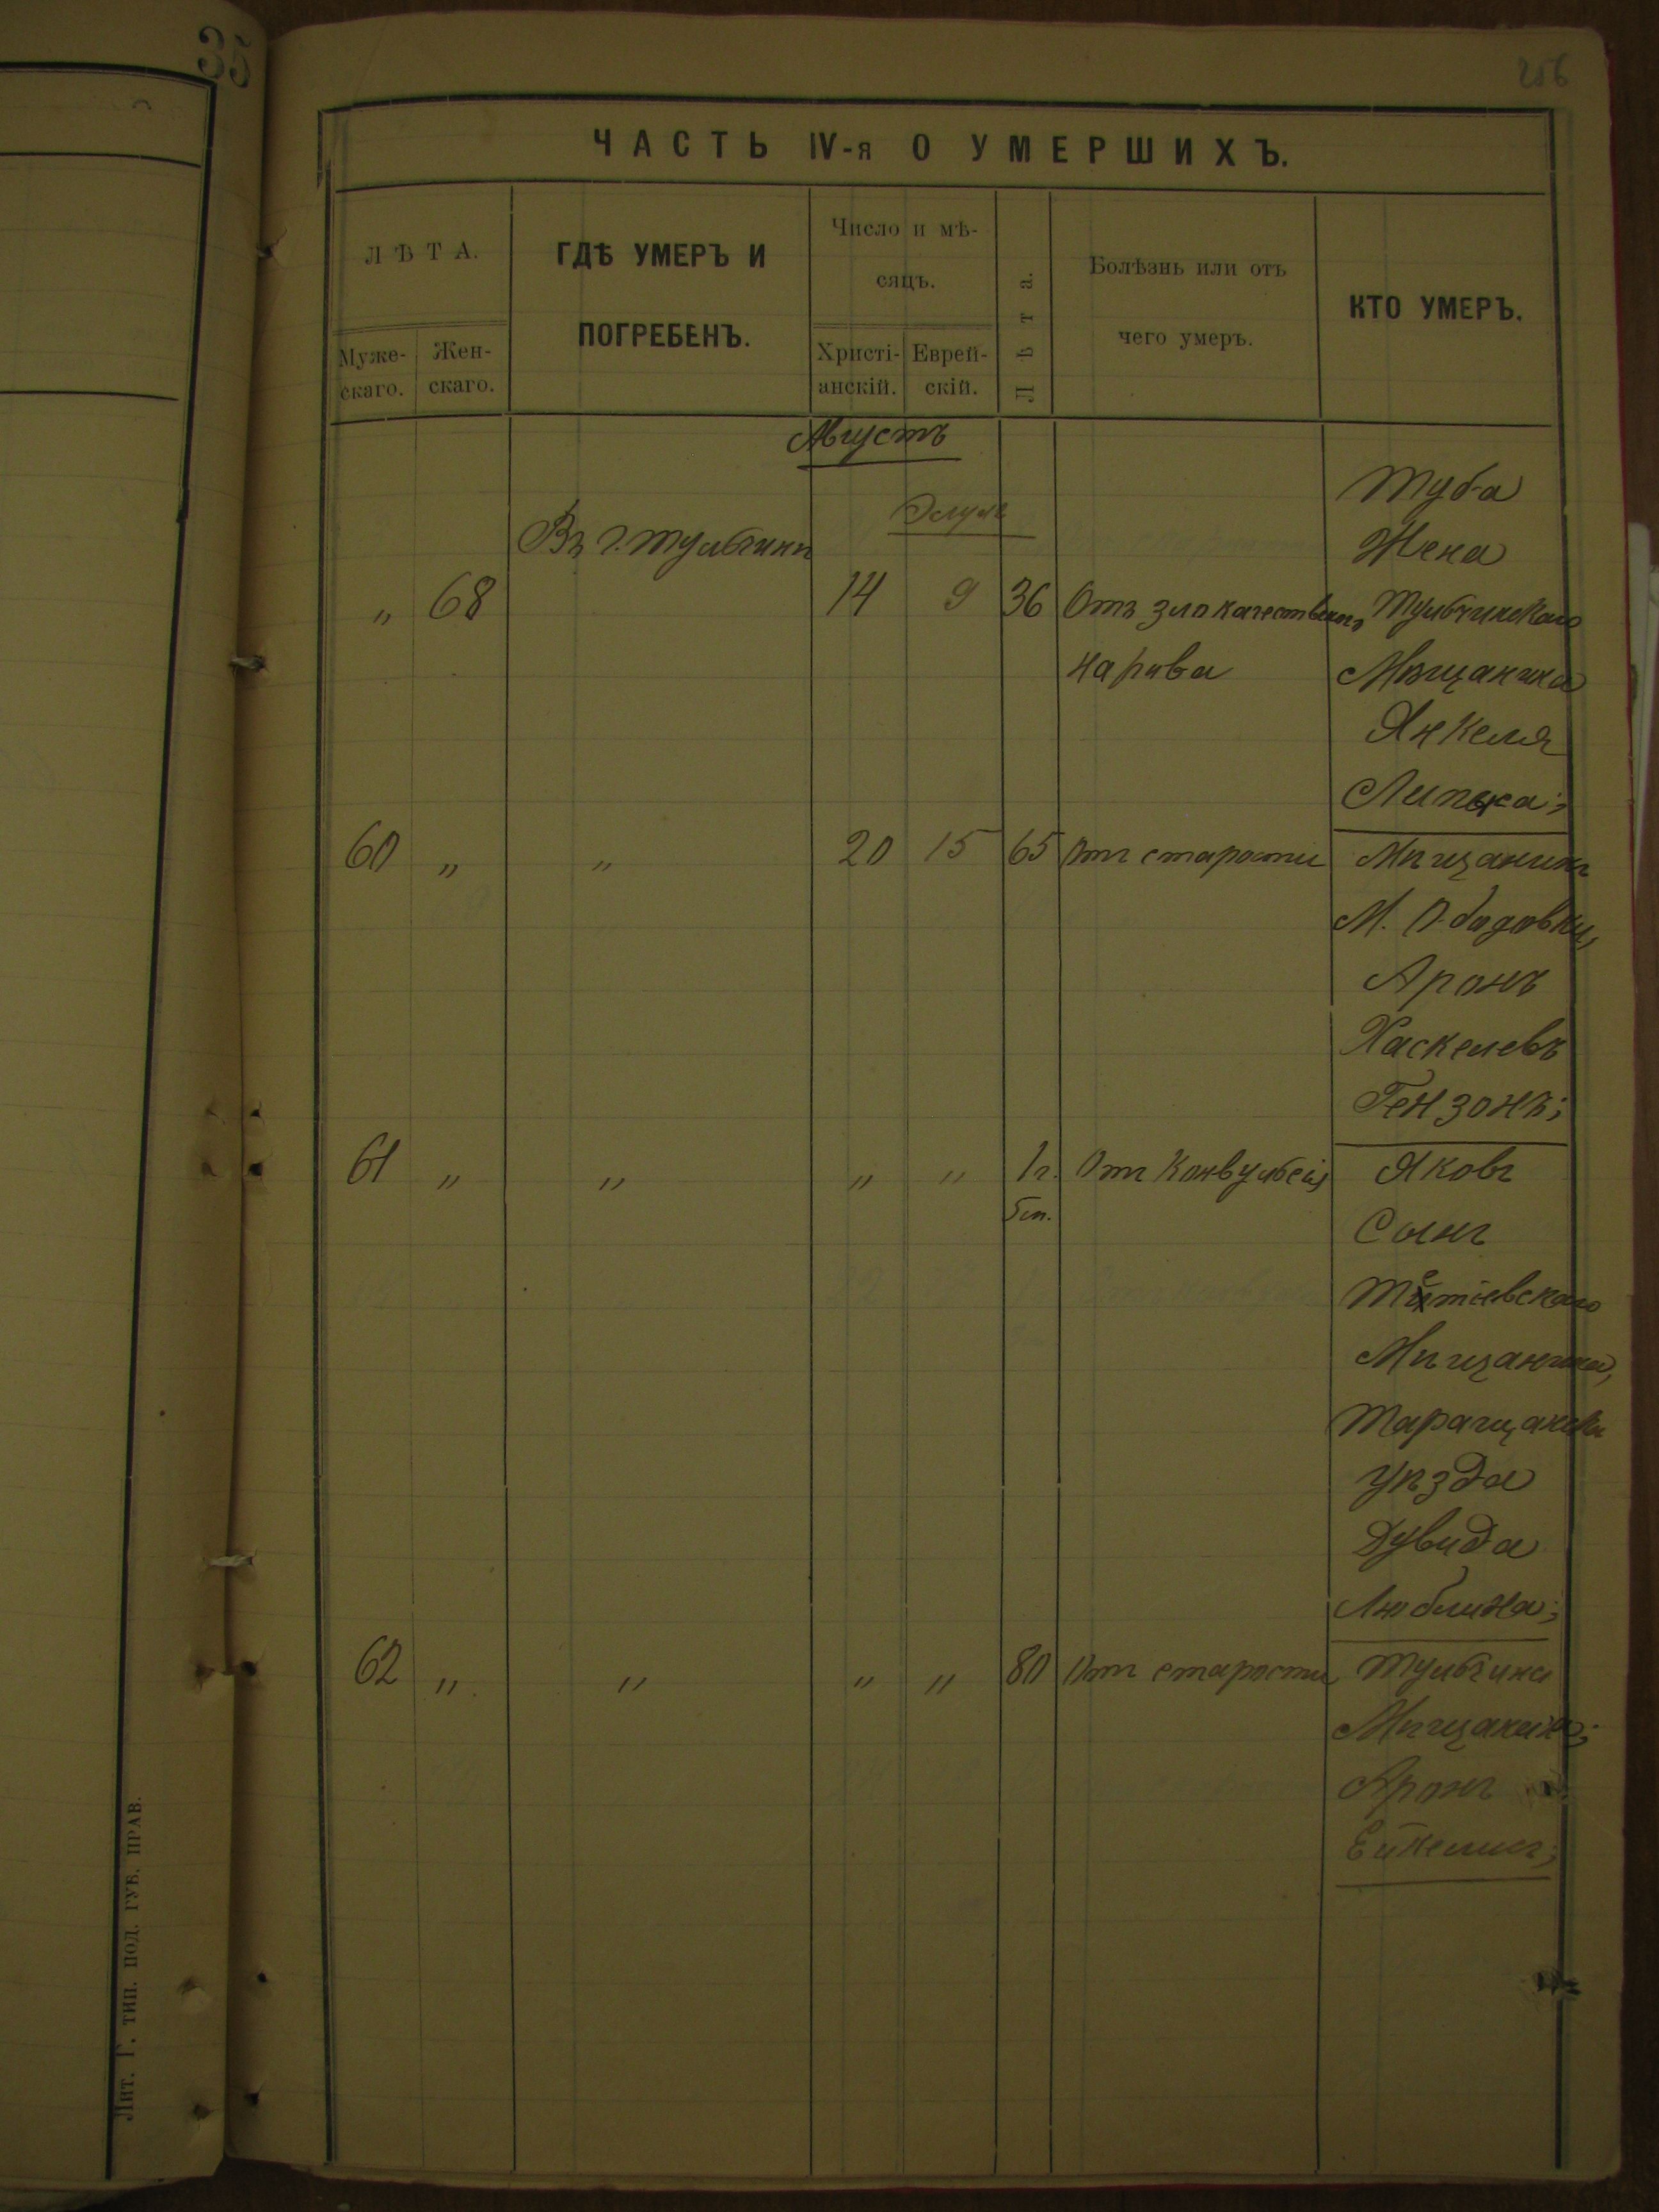 35
256
ЧАСТЬ IV-я О УМЕРШИХЪ.
ЛѢТА.
Муже-
скаго.
Жен-
скаго.
ГДѢ УМЕРЪ И
ПОГРЕБЕНЪ.
Число и мѣ-
сяцъ.
Христі-
анскій.
Еврей-
скій.
Лѣта.
Болѣзнь или отъ
чего умеръ.
КТО УМЕРЪ.
Августъ
Элулъ
Туба
Въ г. Тульчинѣ
Жена
" 68 14 9 36 Отъ злокачествен. Тульчинскаго
нарыва Мѣщанина
Янкеля
60 " " 20 15 65 Отъ старости Мѣщанинъ
М. Ободовки,
Аронъ
Хаскелевъ
Гензонъ;
61 " " " " 1 г. Отъ Конвульсій Яковъ
5 м. Сынъ
Тетіевскаго
Мѣщанина,
Таращанска
уѣзда
Дувида
Люблина;
62 " " " " 80 Отъ старости Тульчина
Мѣщанинъ;
Аронъ
Лит. Г. тип. под. губ. прав.